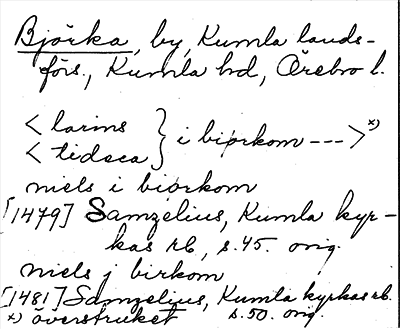 Björka, by, Kumla lands-
förs., Kumla hd, Örebro l.
< larins } i biørkom --- > x)
< tideca
niels i biørkom
[1479] Samzelius, Kumla kyr-
kas rb, s. 45. orig.
niels j birkom
[1481] Samzelius, Kumla kyrkas rb.
x) överstruket s. 50. orig.